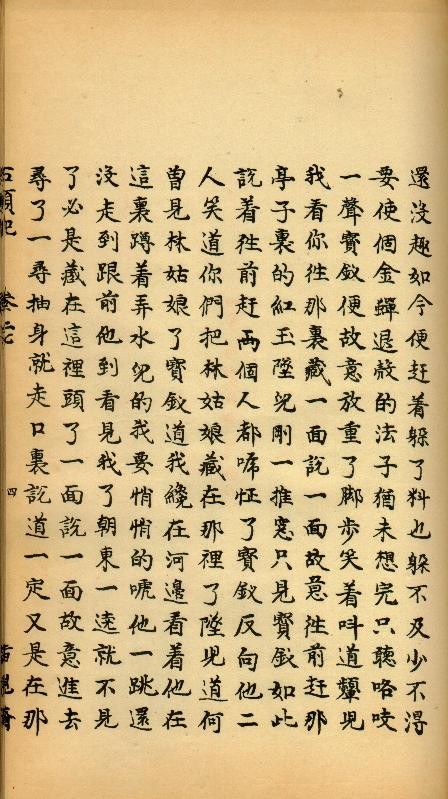 還没趣如今便赶着躱了料也躱不及少不得
要使個金蟬退殼的法子猶未想完只聽咯吱
一聲寳釵便故意放重了脚步笑着呌道顰児
我看你徃那裏藏一面説一面故意徃前赶那
亭子裏的紅玉墜児剛一推窓只見寳釵如此
説着徃前赶両個人都唬怔了寳釵反向他二
人笑道你們把林姑娘藏在那裡了墜児道何
曽見林姑娘了寳釵道我纔在河邉看着他在
這裏蹲着弄水児的我要悄悄的唬他一跳還
没走到跟前他到看見我了朝東一遶就不見
了必是藏在這裡頭了一面説一面故意進去
尋了一尋抽身就走口裏説道一定又是在那
石頭記
四